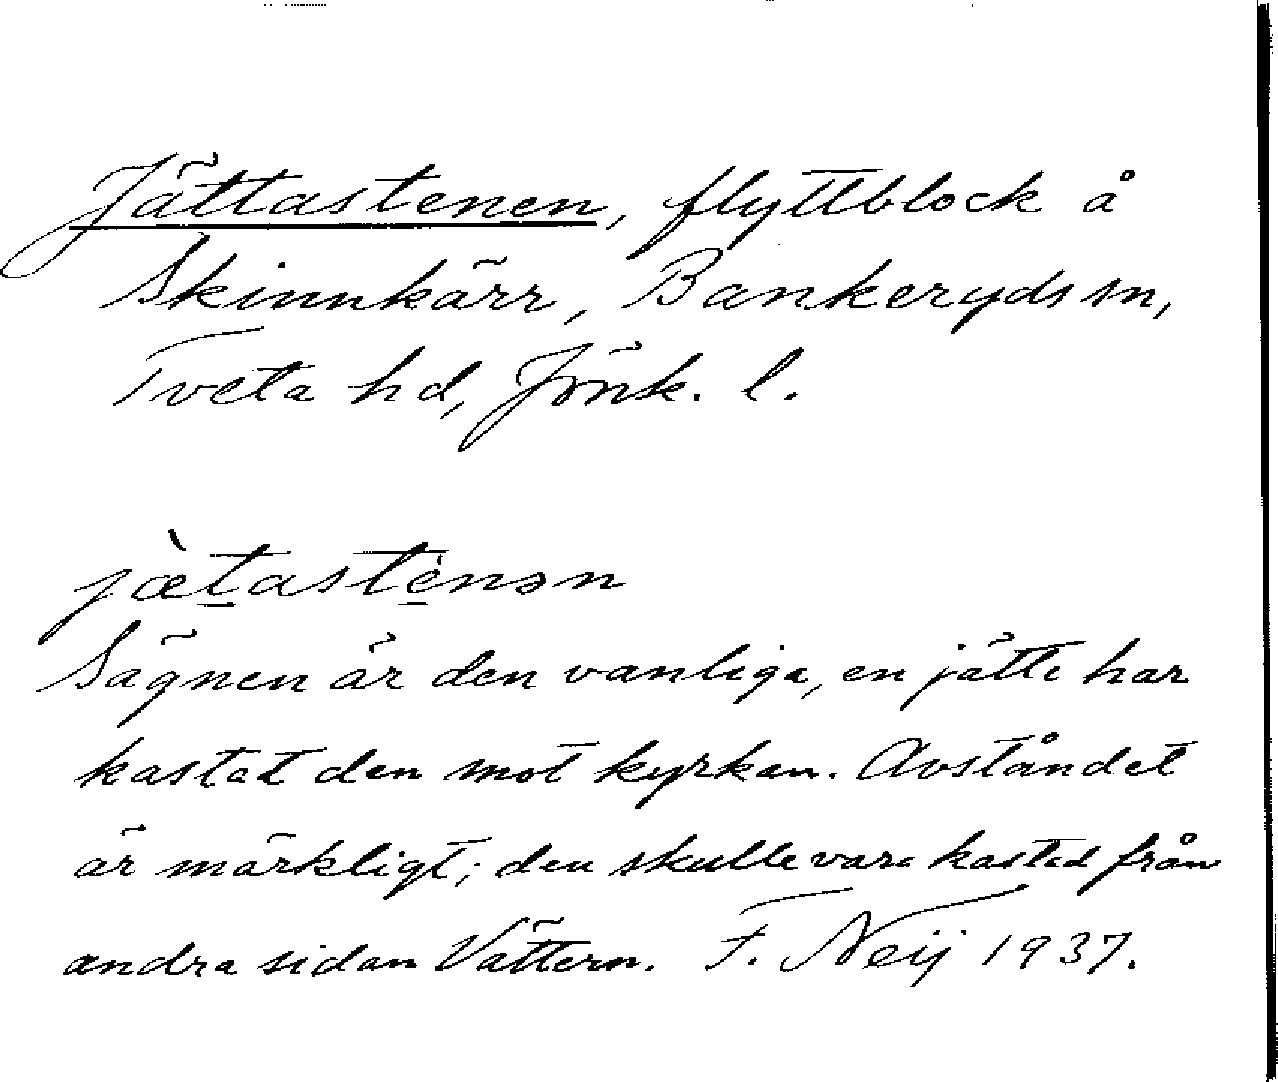 Jättastenen, flyttblock å
Skinnkärr, Bankeryds sn,
Tveta hd, Jönk. l.
jæ̀tastènən
Sägnen är den vanliga, en jätte har
kastat den mot kyrkan. Avståndet
är märkligt; den skulle vara kastad från
andra sidan Vättern. F. Neij 1937.